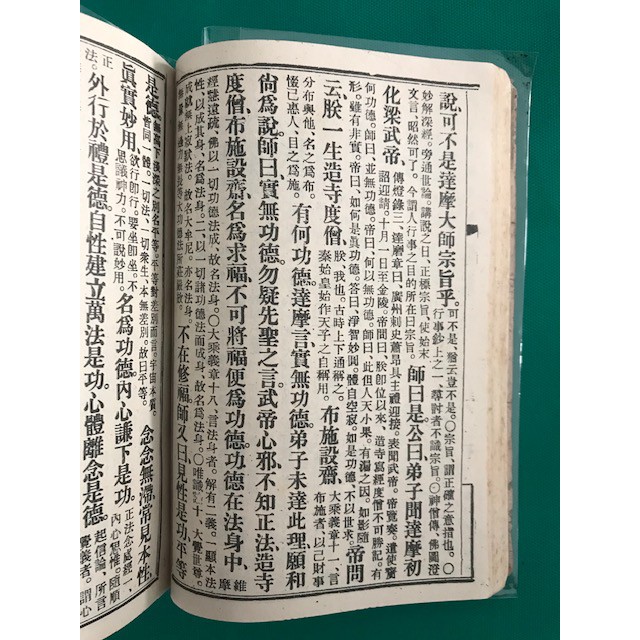 說可不是達摩大師宗旨乎。
可不是、猶云豈不是。○宗旨、謂正確之意指也。○
行事鈔上之一、尋討者不識宗旨。○神僧傳、佛圖澄
妙解深經。旁通世論。講說之日、正標宗旨、使始末
文言、昭然可了。今謂人行事之目的所在曰宗旨。
師曰是公曰弟子聞達摩初
化梁武帝、
傳燈錄三、達摩章曰、廣州刺史蕭昂具主禮迎接。表聞武帝。帝覽奏。遣使齎
詔迎請。十月一日至金陵。帝問曰、朕即位以來、造寺寫經度僧不可勝記。有
何功德。師曰、並無功德。帝曰、何以無功德。師曰、此但人天小果。有漏之因。如影隨
形。雖有非實。帝曰、如何是眞功德。答曰、淨智妙圓。體自空寂。如是功德、不以世求。
帝問
云朕一生造寺度僧、
朕、我也。古時上下通稱之。
秦始皇始作天子之自稱用。
布施設齋、
大乘義章十一、言
布施者、以己財事
分布與他、名之為布。
惙己惠人、目之為施。
有何功德達摩言實無功德弟子未達此理願和
尙爲說師曰實無功德勿疑先聖之言武帝心邪不知正法造寺
度僧布施設齋名爲求福不可將福便爲功德功德在法身中、
維
摩
經慧遠疏、佛以一切功德法成、故名法身。○大乘義章十八、言法身者。解有二義。一顯本法
性、以成其身、名爲法身。二、以一切諸功德法而成身、故名爲法身。○唯識論十、大覺世尊。
成就無上寂默法。故名大牟尼。亦名法身。
無量無邊力無畏等大功德法所莊嚴故。
不在修福師又曰見性是功平等
是德
無高下淺深之別名平等。平等對差別而言。宇宙本質。
皆同一體。一切法、一切衆生、本無差別。故曰平等。
念念無滯常見本性
眞實妙用、
欲行即行。要坐即坐。不
思議神力。不可說妙用。
名爲功德內心謙下是功、
正法念處經一、
內心思惟。隨順
正
法。
外行於禮是德自性建立萬法是功心體離念是德。
起信論、所言
覺義者。謂心